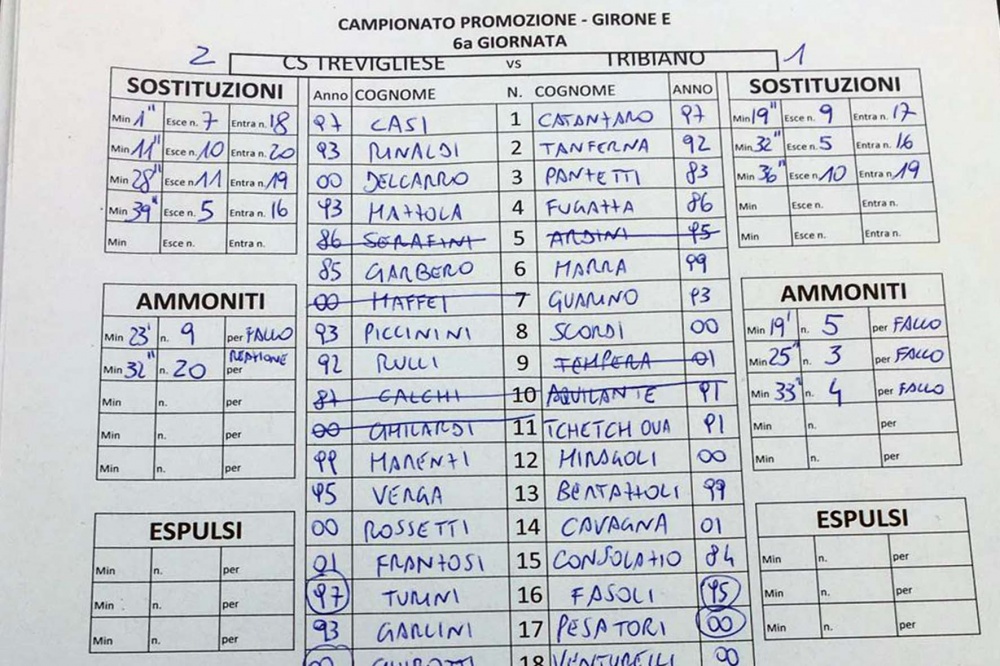 CAMPIONATO PROMOZIONE - GIRONE E
6a GIORNATA
2 CS TREVIGLIESE vs TRIBIANO 1
SOSTITUZIONI Anno COGNOME N. COGNOME ANNO SOSTITUZIONI
Min 1" Esce n. 7 Entra n. 18 97 CASI 1 CATANZARO 97 Min 19" Esce n. 9 Entra n. 17
Min 11" Esce n. 10 Entra n. 20 93 RINALDI 2 TANFERNA 92 Min 32" Esce n. 5 Entra n. 16
Min 28" Esce n. 11 Entra n. 19 00 DELCARRO 3 PANZETTI 83 Min 36" Esce n. 10 Entra n. 19
Min 39" Esce n. 5 Entra n. 16 93 MAZZOLA 4 FUGAZZA 86 Min Esce n. Entra n.
Min Esce n. Entra n. 86 SERAFINI 5 ARDINI 95 Min Esce n. Entra n.
85 GARBERO 6 MARRA 99
AMMONITI 00 MAFFEI 7 GUARINO 93 AMMONITI
Min 23' n. 9 per FALLO 93 PICCININI 8 SCORDI 00 Min 19' n. 5 per FALLO
Min 32" n. 20 per REAZIONE 92 RULLI 9 TEMPERA 01 Min 25" n. 3 per FALLO
Min n. per 87 CALCHI 10 AQUILANTE 91 Min 33" n. 4 per FALLO
Min n. per 00 GHILARDI 11 TCHETCHOUA 91 Min n. per
Min n. per 99 MARENZI 12 MIRAGOLI 00 Min n. per
95 VERGA 13 BERTAZZOLI 99
ESPULSI 00 ROSSETTI 14 CAVAGNA 01 ESPULSI
Min n. per 01 FRANZOSI 15 CONSOLAZIO 84 Min n. per
Min n. per 97 TURINI 16 FASOLI 95 Min n. per
Min n. per 93 GARLINI 17 PESATORI 00 Min n. per
00 18 VENTURELLI 00